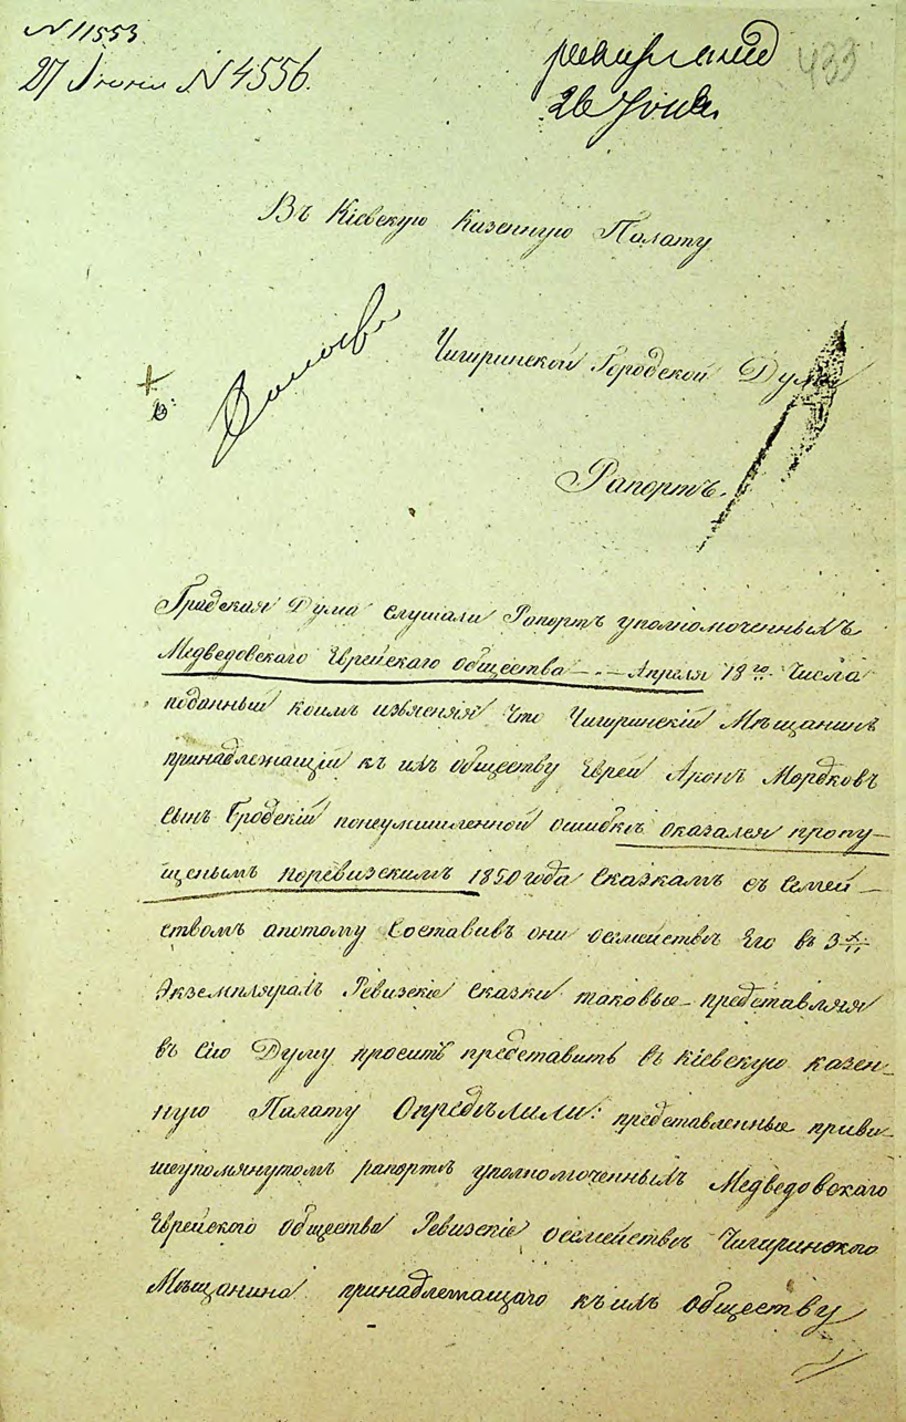 N 11553
27 Июня N 4556.
433
26 Юня
Въ Кіевскую Казенную Палату
Чигиринской Городской Думы
Рапортъ.
Градская Дума слушали Рапортъ уполномоченныхъ
Медведовскаго Еврейскаго общества - . - Апреля 18го числа
поданный коимъ изъясняя что Чигиринскій Мѣщанинъ
принадлежащій къ ихъ обществу Еврей Аронъ Мордковъ
сынъ Бродскій понеумышленной ошибкѣ оказался пропу-
щенымъ поревизскимъ 1850 года Сказкамъ съ Семей-
ствомъ апотому Составивъ они осемействѣ Его въ 3х
Экземплярахъ Ревизскіе Сказки таковые представляя
въ Сію Думу просить представить въ Кіевскую казен-
ную Палату Опредѣлили: представленные привы-
шеупомянутомъ рапортѣ уполномоченныхъ Медведовскаго
Еврейского Общества Ревизскіе осемействѣ Чигиринского
Мѣщанина принадлежащаго къ ихъ обществу